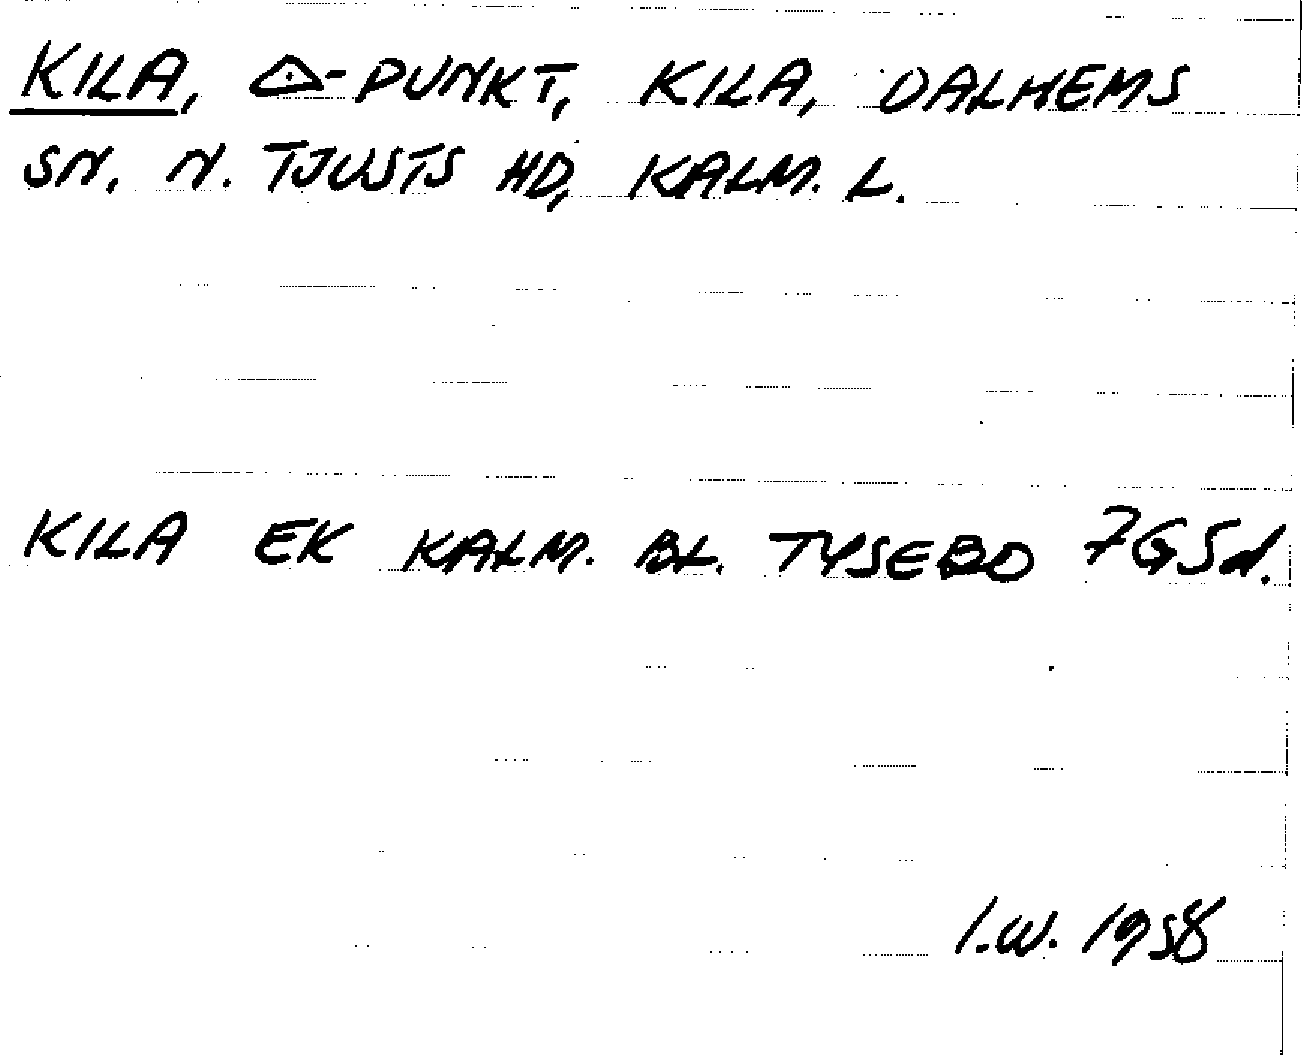 KILA, △-PUNKT, KILA, DALHEMS
SN, N. TJUSTS HD, KALM. L.
KILA EK KALM. BL. TYSEBO 7G5d.
I.W. 1958